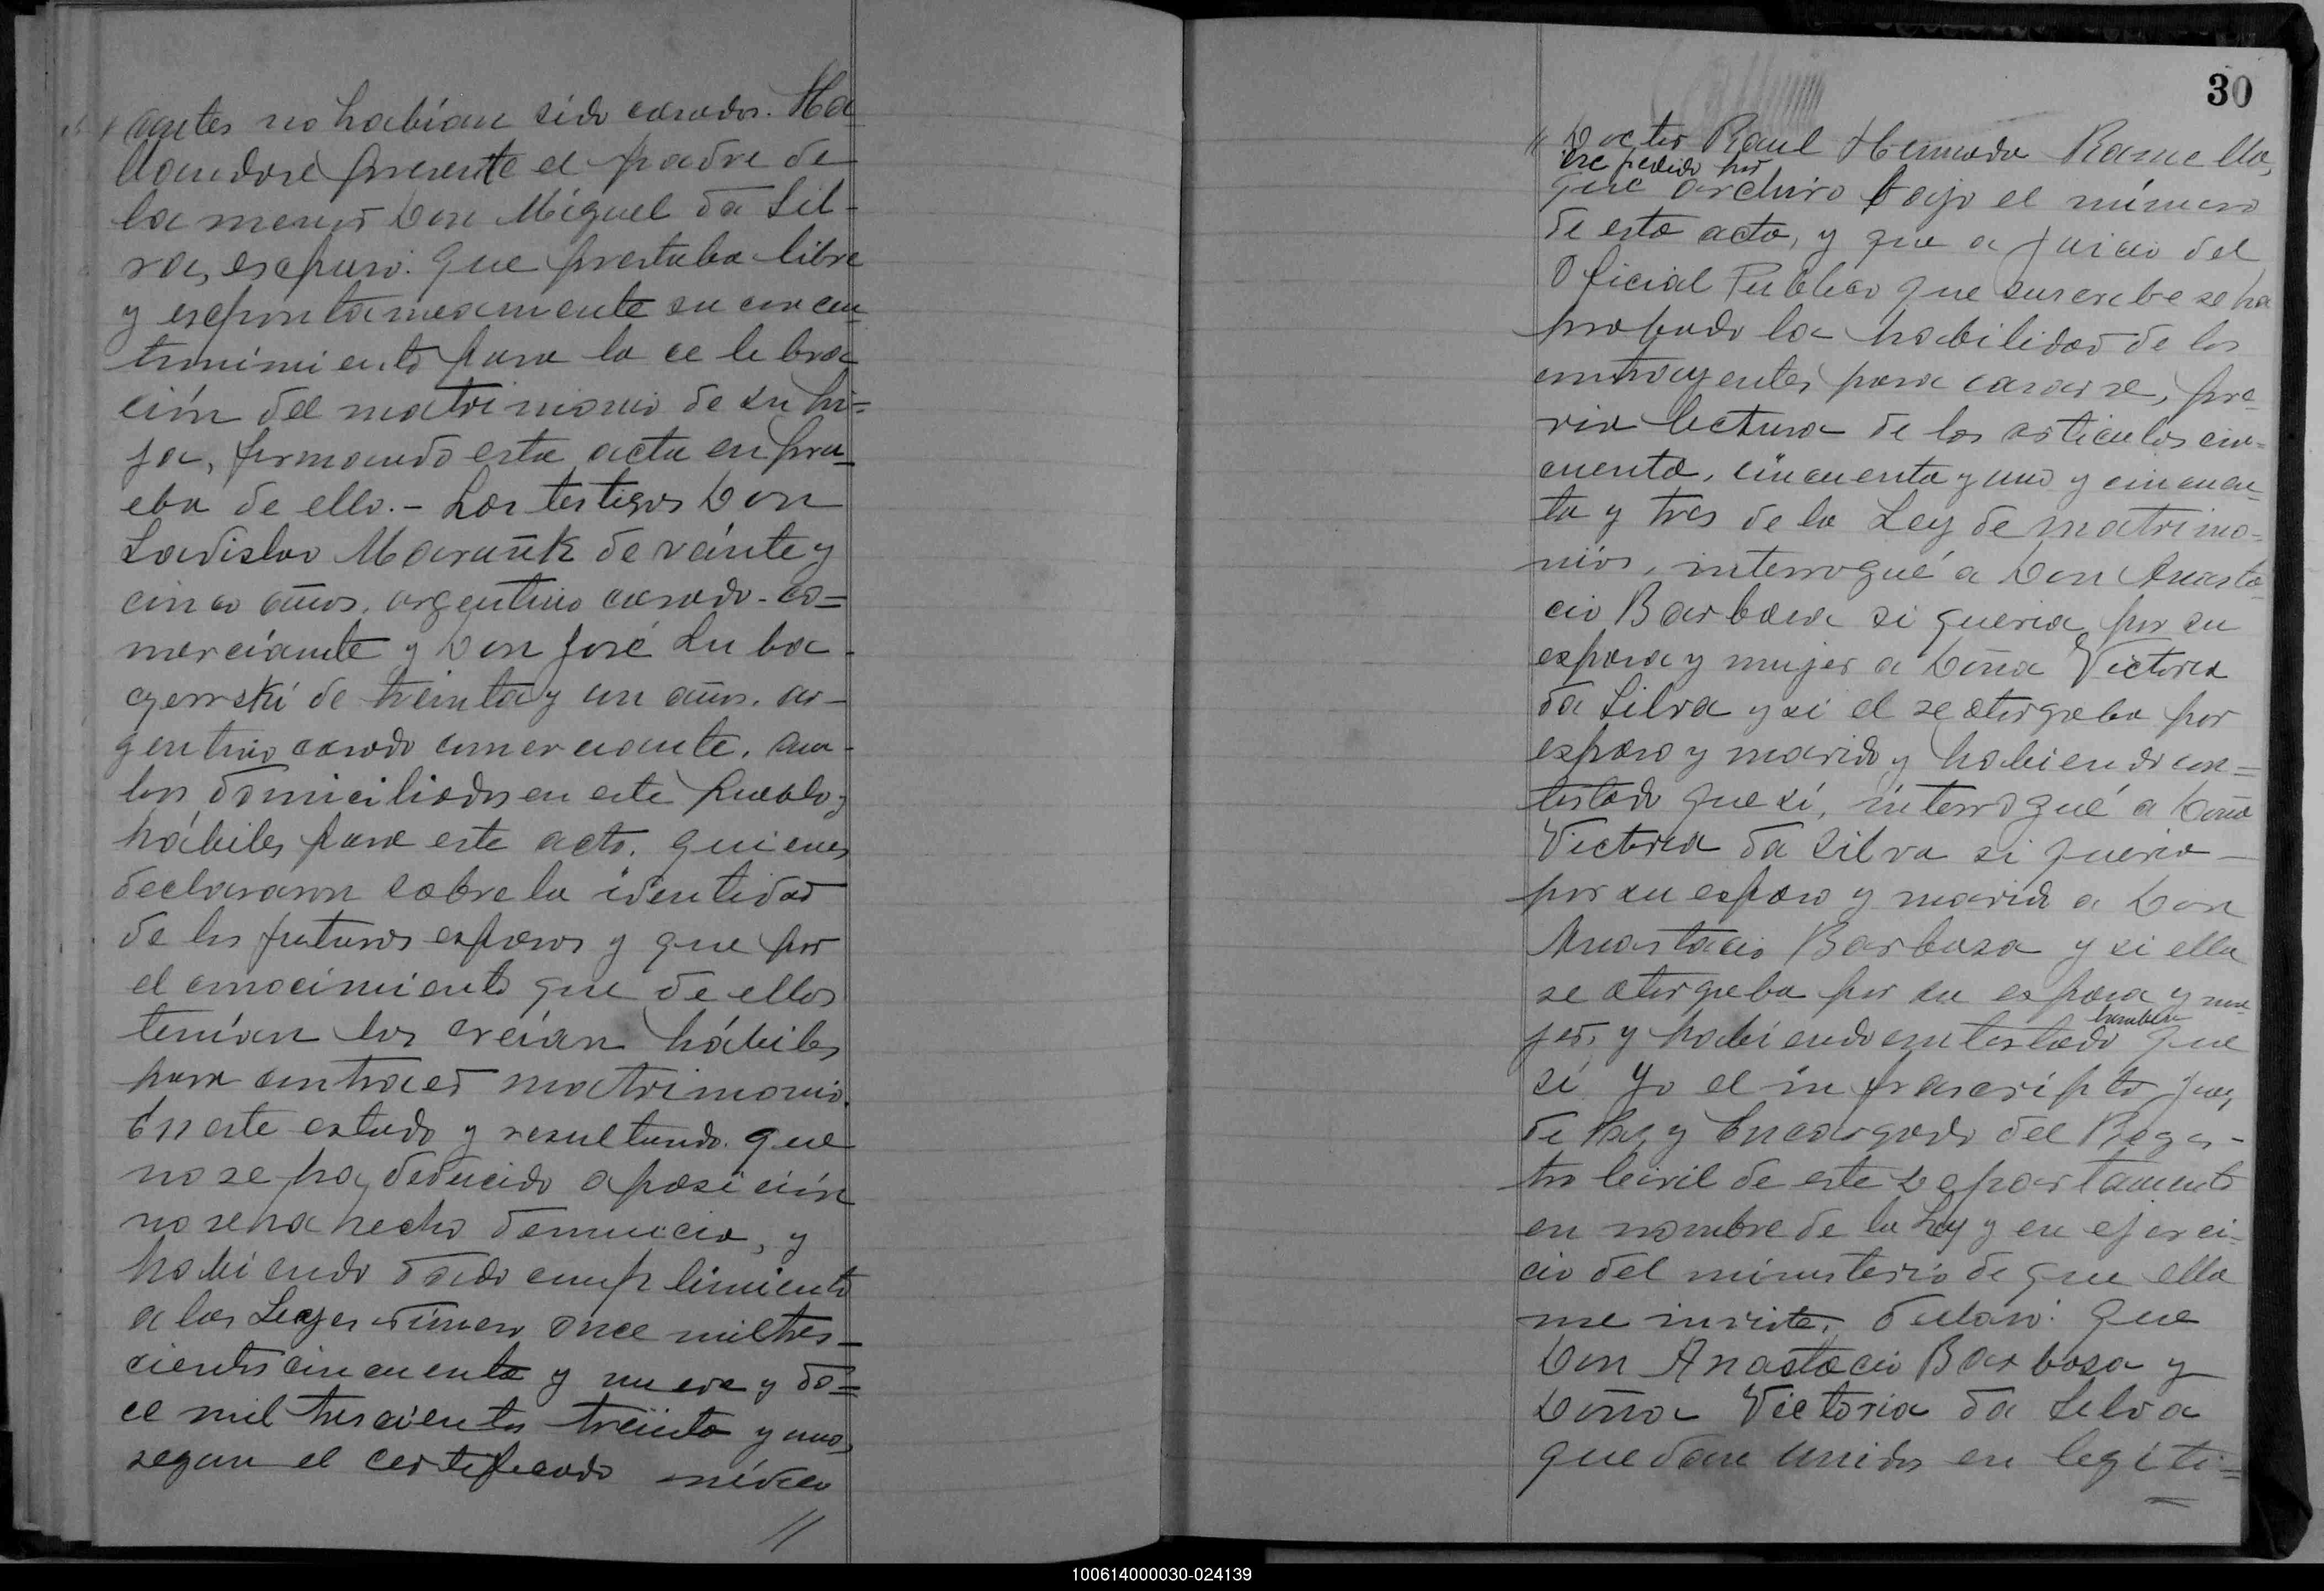 antes no habían sido casados. Ha
llandose presente el padre de
la menor Don Miguel da Sil-
va, expuso: que prestaba libre
y expontaneamente su concen-
timiento para la celebra
ción del matrimonio de su hi=
ja, firmando esta acta en pru-
eba de ello.- Los testigos Don
Ladislao Maruñk de veinte y
cinco años, argentino casado- co=
merciante y Don José Luba-
czewski de treinta y un años, ar-
gentino casado comerciante, am-
bos domiciliados en este pueblo y
hábiles para este acto, quienes
declararon sobre la identidad
de los futuros esposos y que por
el conocimiento que de ellos
tenían los creían hábiles
para contraer matrimonio.
En este estado y resultando que
no se ha deducido oposición
no se ha hecho denuncia, y
habiendo dado cumplimiento
a las Leyes número once mil tres-
cientos cincuenta y nueve y do=
ce mil trescientos treinta y uno,
segun el certificado médico
//
30
" Doctor Raul Ramella,
expedido por
que archivo bajo el número
de esta acta, y que a juicio del
Oficial Publico que suscribe se ha
probado la habilidad de los
contrayentes para casarse, pre-
via lectura de los articulos cin-
cuenta, cincuenta y uno y cincuen-
ta y tres de la Ley de matrimo=
nios, interrogué a Don Anasta
cio Barbosa si queria por su
esposa y mujer a Doña Victoria
da Silva y si el se otorgaba por
esposo y marido y habiendo con=
testado que sí, interrogué a Doña
Victoria da Silva si queria
por su esposo y marido a Don
Anastacio Barbosa y si ella
se otorgaba por su esposa y mu-
tambien
jer, y habiendo contestado que
sí. Yo el infrascripto Juez
de Paz y Encargado del Regis-
tro Civil de este Departamento
en nombre de la Ley y en ejerci-
cio del ministerio de que ella
me inviste, declaro: que
Don Anastacio Barbosa y
Doña Victoria da Silva
quedan unidos en legiti=
100614000030-024139